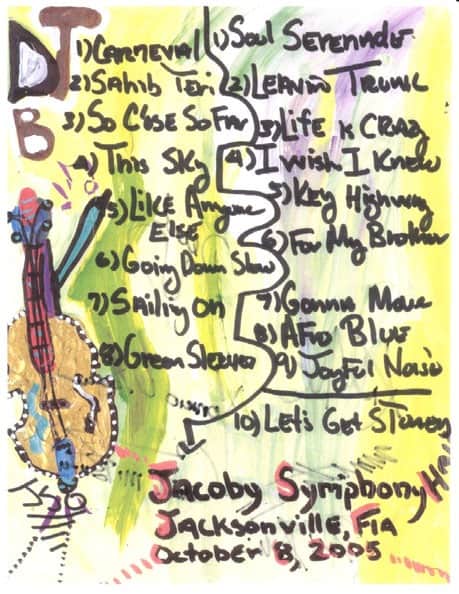 DTB
1) CARNEVIAL
2) SAHIB TERI
3) SO Close SO FAR
4) This Sky
5) LIKE Anyone
ELSE
6) Going Down Slow
7) Sailing On
8) Green Sleeves
1) Soul SERENADE
2) LEAVIN TRUNK
3) LIFE is CRAZY
4) I Wish I Knew
5) Key Highway
6) For My Brother
7) Gonna Move
8) AFRO BLUE
9) JoyFul Noise
10) Let's Get STONED
Jacoby Symphony Hall
JACKSONVILLE, Fla
October 8, 2005